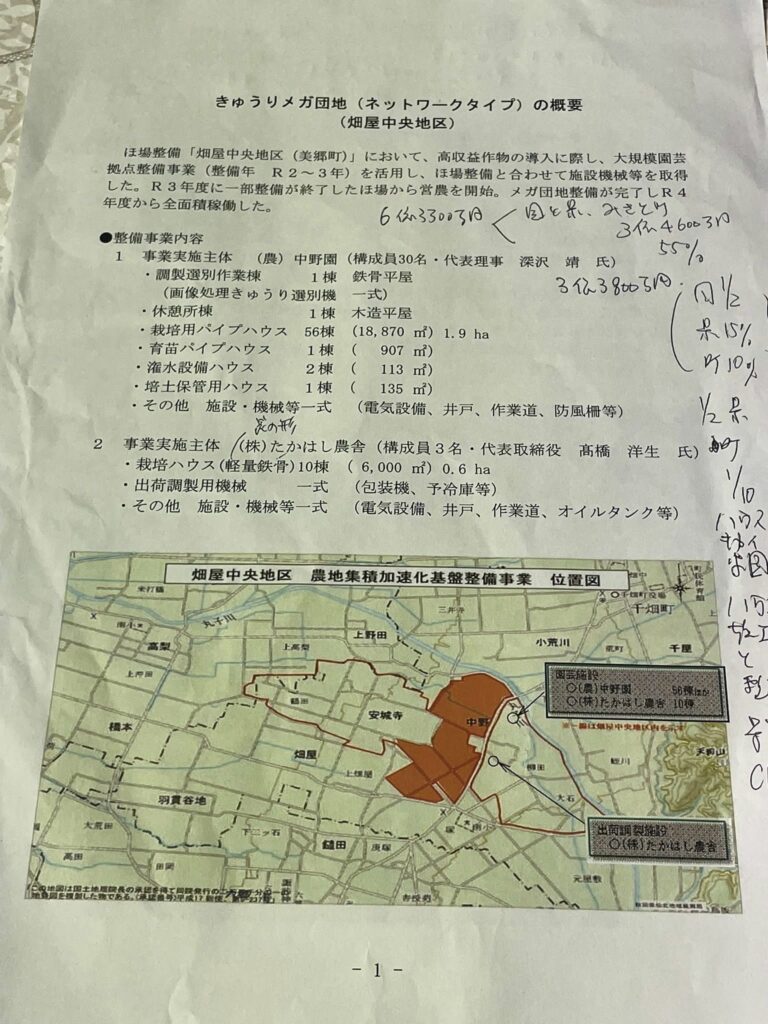 きゅうりメガ団地（ネットワークタイプ）の概要
（畑屋中央地区）
ほ場整備「畑屋中央地区（美郷町）」において、高収益作物の導入に際し、大規模園芸
拠点整備事業（整備年　Ｒ２～３年）を活用し、ほ場整備と合わせて施設機械等を取得
した。Ｒ３年度に一部整備が終了したほ場から営農を開始。メガ団地整備が完了しＲ４
年度から全面積稼働した。
6億3300万円
国と県、みさと町
3億4600万円
55%
●整備事業内容
１　事業実施主体　（農）中野園（構成員30名・代表理事　深沢　靖　氏）
・調製選別作業棟　１棟　鉄骨平屋
3億3800万円
（画像処理きゅうり選別機　一式）
・休憩所棟　１棟　木造平屋
・栽培用パイプハウス　56棟（18,870 ㎡）1.9 ha
・育苗パイプハウス　１棟（　907 ㎡）
・潅水設備ハウス　２棟（　113 ㎡）
・培土保管用ハウス　１棟（　135 ㎡）
・その他　施設・機械等一式　（電気設備、井戸、作業道、防風柵等）
国1/2
県15%
町10%
1/2 県
町
1/10
ハウス
２　事業実施主体　（株）たかはし農舎（構成員３名・代表取締役　髙橋　洋生　氏）
・栽培ハウス（軽量鉄骨）10棟（ 6,000 ㎡）0.6 ha
・出荷調製用機械　一式　（包装機、予冷庫等）
・その他　施設・機械等一式　（電気設備、井戸、作業道、オイルタンク等）
畑屋中央地区　農地集積加速化基盤整備事業　位置図
丸子川
三井寺
千畑町
上野田
小荒川
千屋
高梨
上高梨
橋本
鶴田
安城寺
中野
園芸施設
○(農)中野園　56棟ほか
○(株)たかはし農舎 10棟
※－線は畑屋中央地区内を示す
畑屋
上畑屋
柳田
大石
蛭川
天狗山
羽貫谷地
大荒田
下二ッ石
鑓田
出荷調製施設
○(株)たかはし農舎
高田
田岡
元屋敷
- 1 -